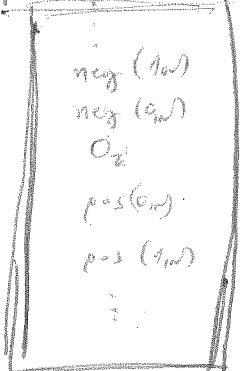 ⋮
neg (1_ℕ)
neg (0_ℕ)
0_ℤ
pos (0_ℕ)
pos (1_ℕ)
⋮